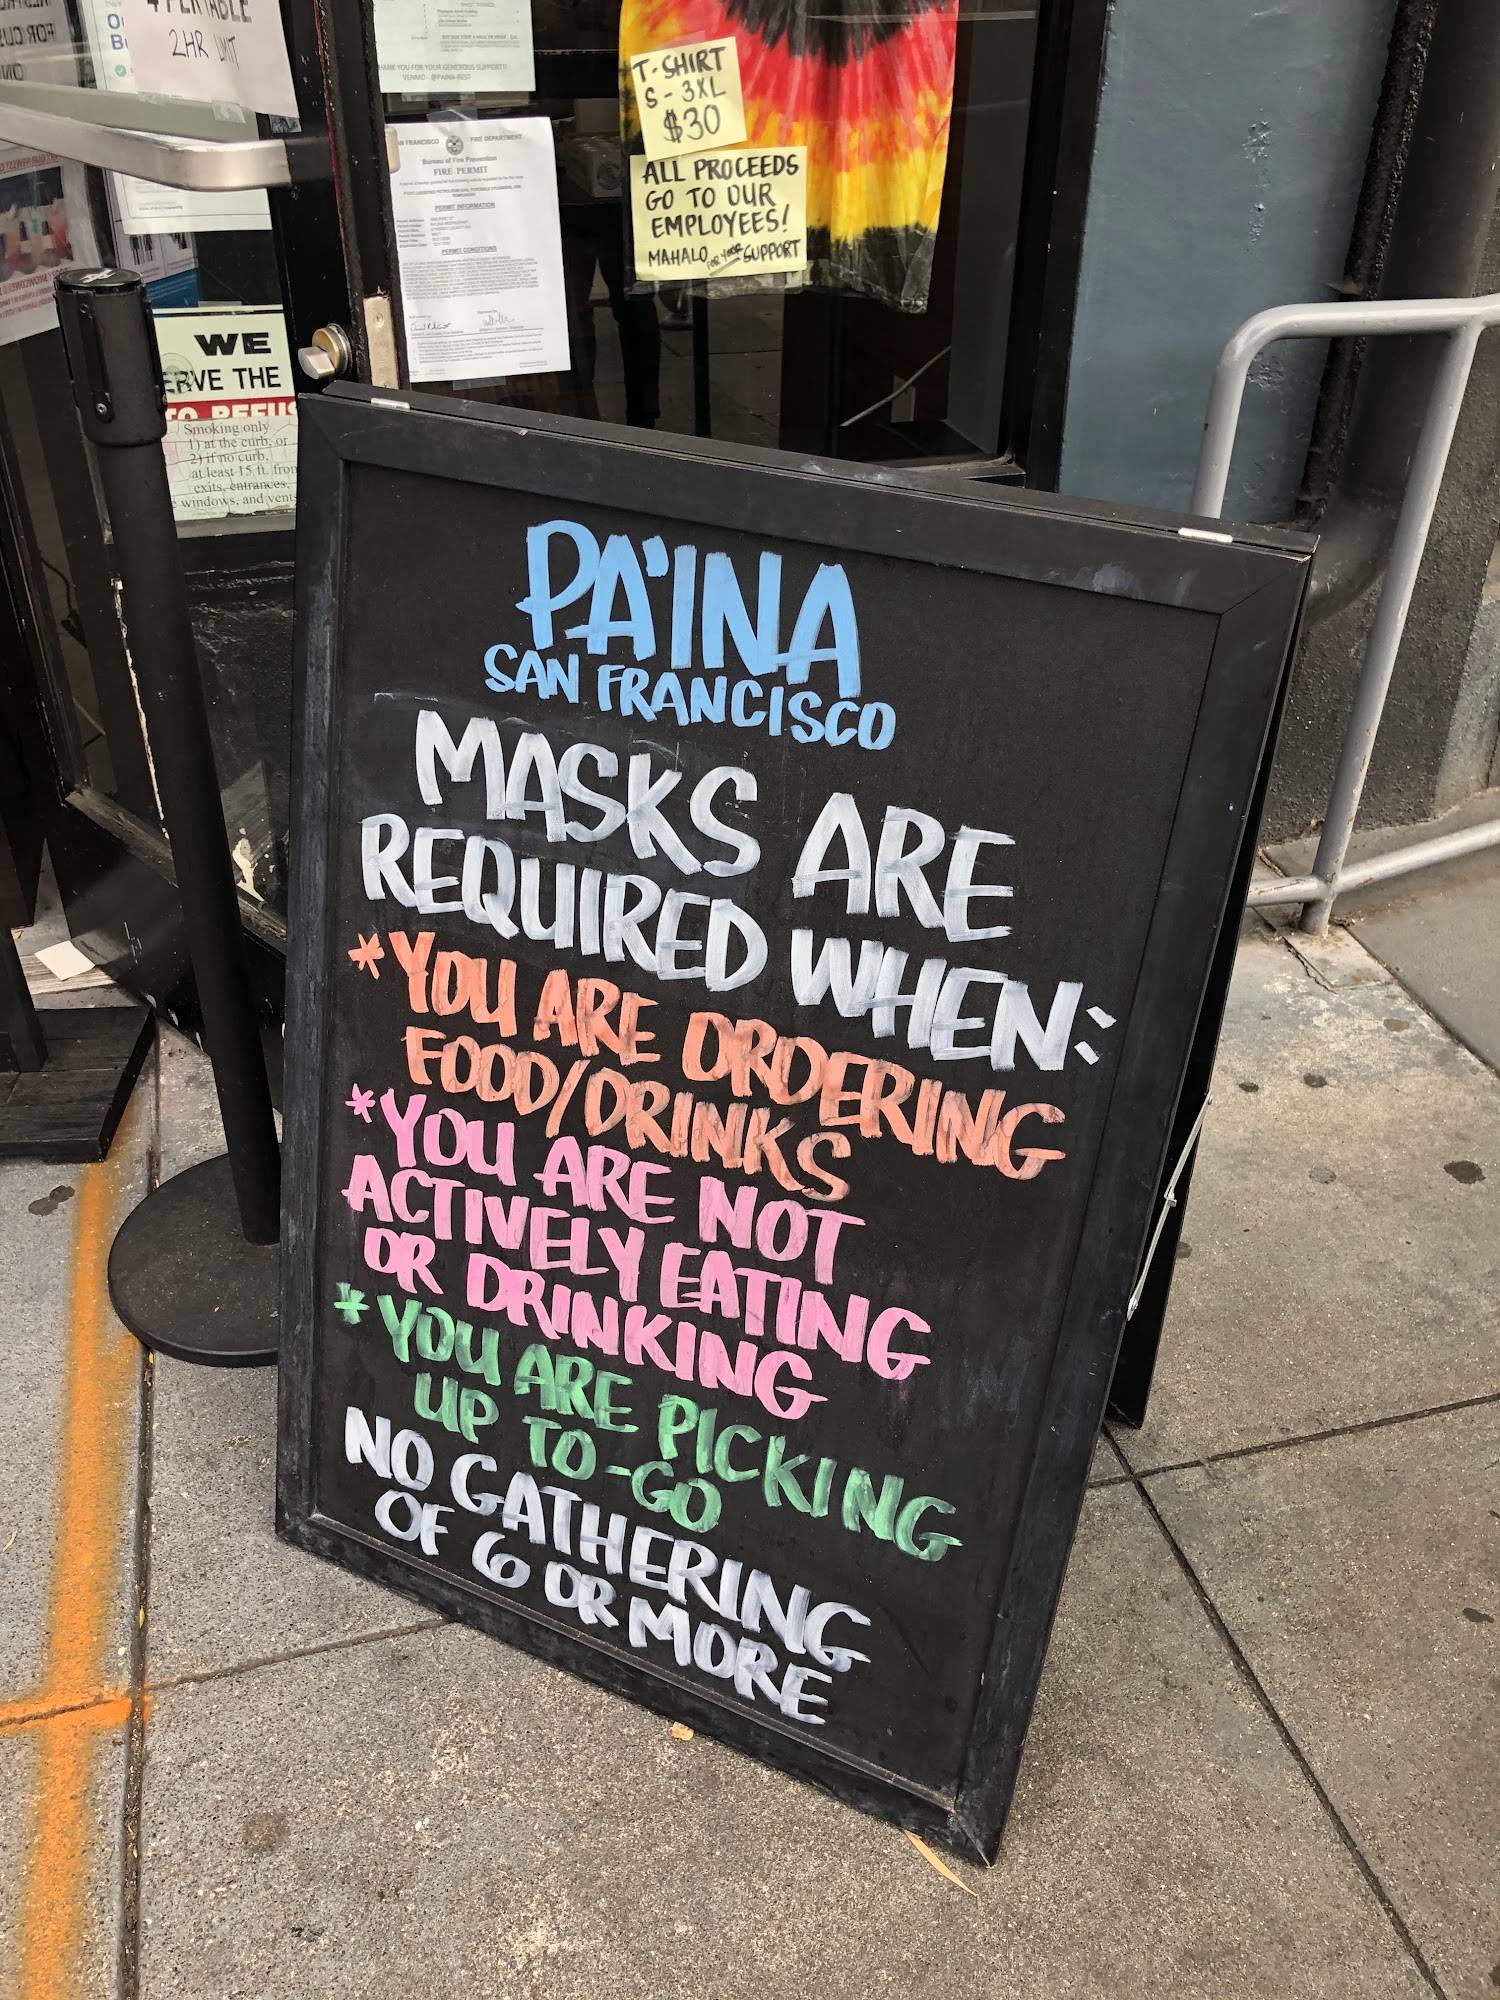 4 PER TABLE
2HR LIMIT
THANK YOU FOR YOUR GENEROUS SUPPORT!!
VENMO - @PAINA-REST
T-SHIRT
S - 3XL
$30
ALL PROCEEDS
GO TO OUR
EMPLOYEES!
MAHALO FOR YOUR SUPPORT
SAN FRANCISCO FIRE DEPARTMENT
Bureau of Fire Prevention
FIRE PERMIT
PERMIT INFORMATION
PERMIT CONDITIONS
WE
ERVE THE
TO REFUS
Smoking only
1) at the curb, or
2) if no curb,
at least 15 ft. from
exits, entrances,
windows, and vents
PA'INA
SAN FRANCISCO
MASKS ARE
REQUIRED WHEN:
*YOU ARE ORDERING
FOOD/DRINKS
*YOU ARE NOT
ACTIVELY EATING
OR DRINKING
*YOU ARE PICKING
UP TO-GO
NO GATHERING
OF 6 OR MORE